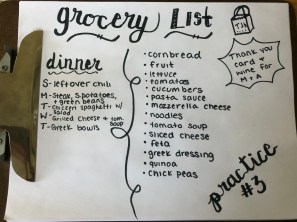 grocery List
TJ's
dinner
S-leftover chili
M-Steak, S.potatoes,
+ green beans
T-Chicken spaghetti w/
salad
W-Grilled Cheese + tom.
soup
T-Greek bowls
cornbread
fruit
lettuce
tomatoes
cucumbers
pasta sauce
mozzerella cheese
noodles
tomato soup
sliced cheese
feta
greek dressing
quinoa
chick peas
Thank you
card +
wine for
M+A
practice
#3